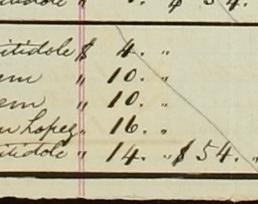 itidole $ 4. "
em " 10. "
em " 10. "
n Lopez " 16. "
itidole " 14. " $ 54. "